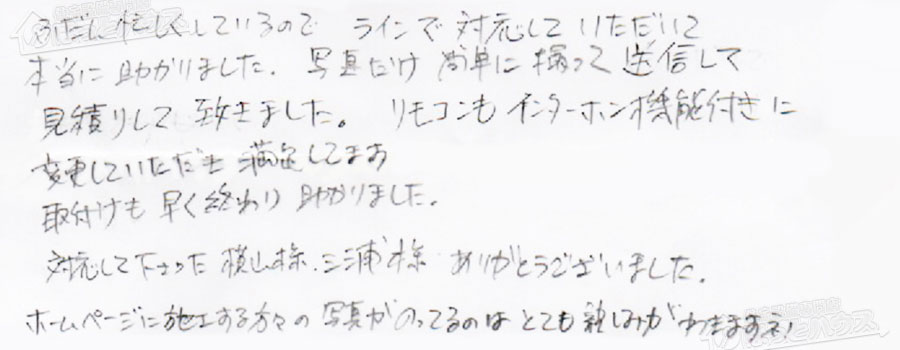 ふだん忙しくしているので ラインで対応していただいて
本当に助かりました。写真だけ簡単に撮って送信して
見積りして致きました。リモコンもインターホン機能付きに
変更していただき満足してます
取付けも早く終わり助かりました。
対応して下さった横山様、三浦様 ありがとうございました。
ホームページに施工する方々の写真がのってるのはとても親しみがわきますネ!